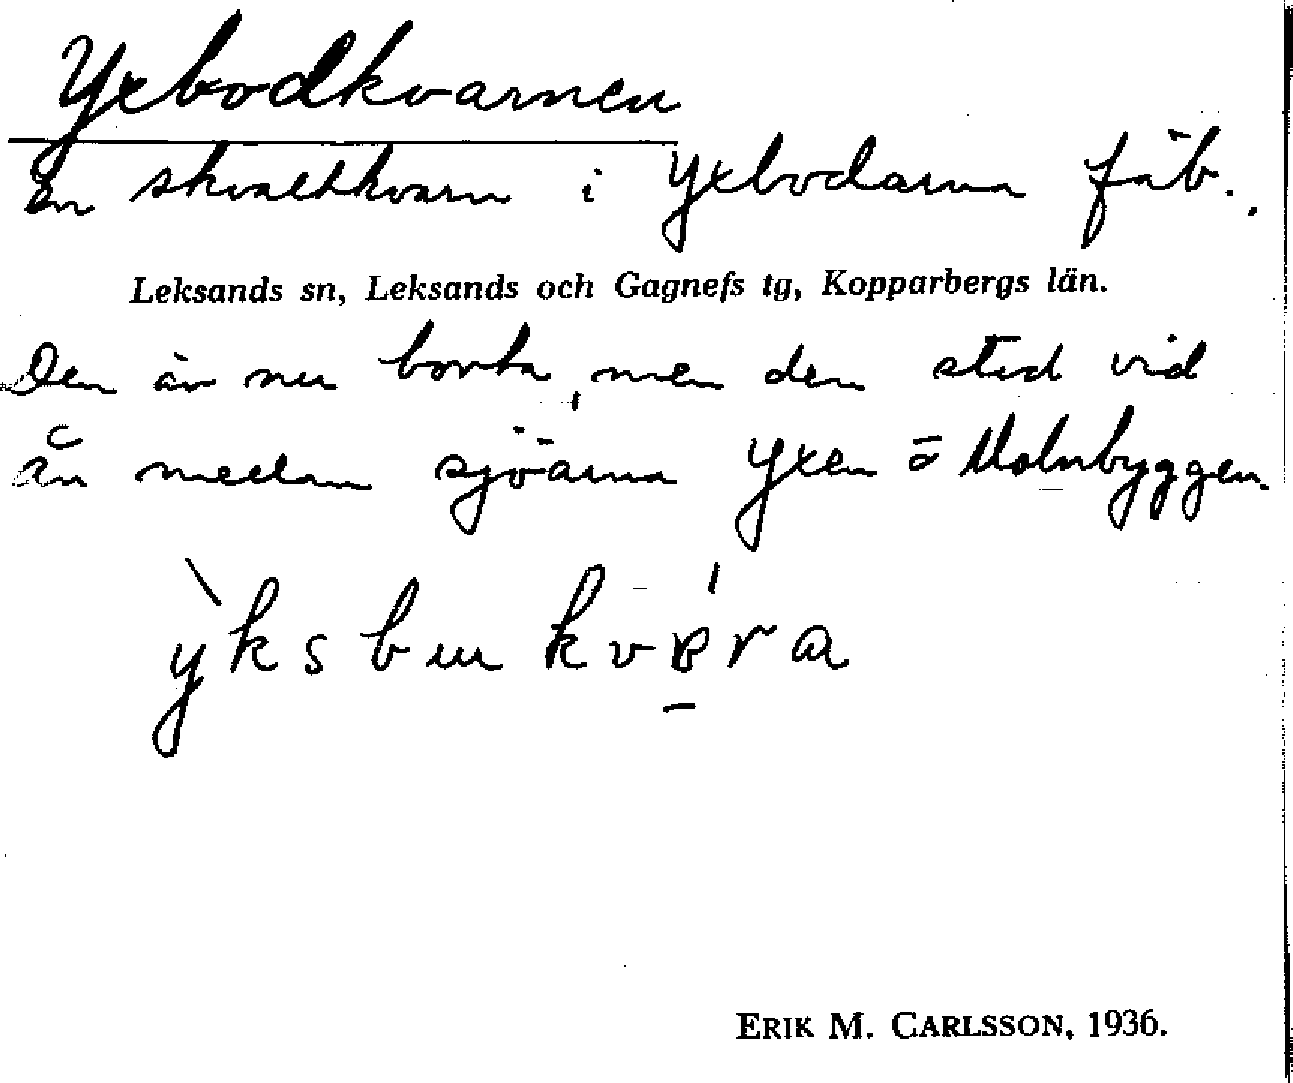 Yxbodkvarnen
En skvaltkvarn i Yxbodarna fäb.
Leksands sn, Leksands och Gagnefs tg, Kopparbergs län.
Den är nu borta, men den stod vid
ån mellan sjöarna Yxen o Molnbyggen.
ERIK M. CARLSSON, 1936.